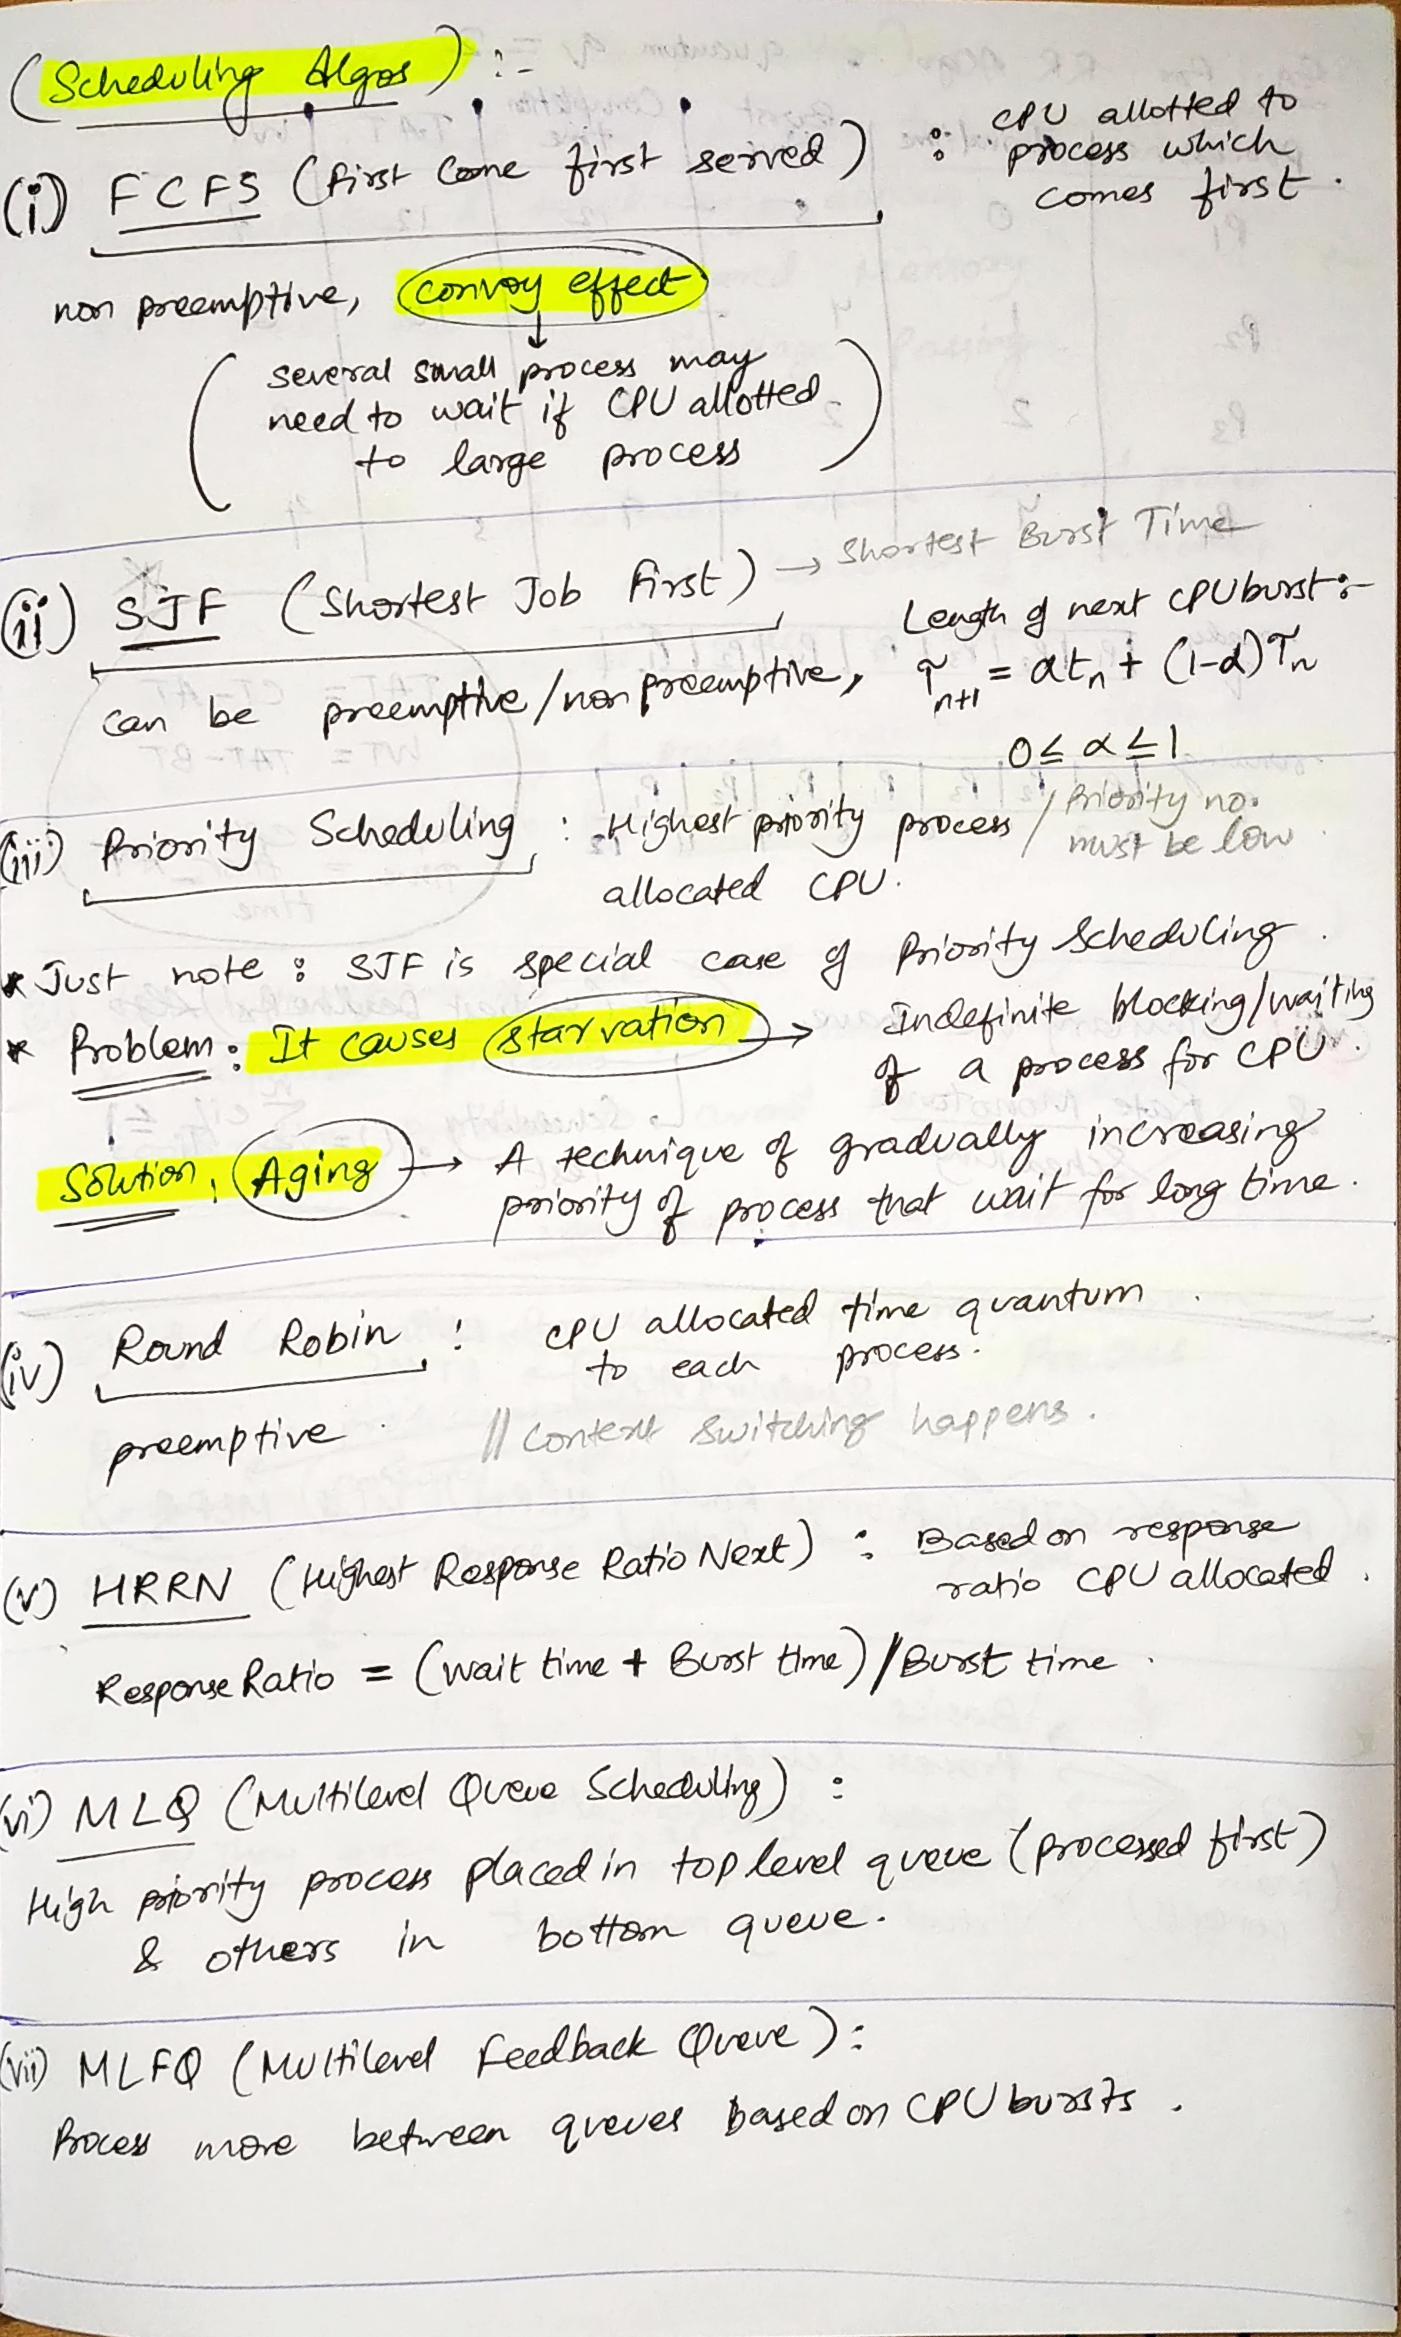 (Scheduling Algos) :-
(i) FCFS (First Come first served) : CPU allotted to
process which
comes first.
non preemptive, convoy effect
(several small process may
need to wait if CPU allotted
to large process)
(ii) SJF (Shortest Job First) → Shortest Burst Time
can be preemptive/non preemptive, Length of next CPU burst :-
τn+1 = αtn + (1-α)τn
0 ≤ α ≤ 1
(iii) Priority Scheduling : Highest priority process / Priority no.
must be low
allocated CPU.
* Just note : SJF is special case of Priority Scheduling.
* Problem : It causes starvation → Indefinite blocking/waiting
of a process for CPU.
Solution : Aging → A technique of gradually increasing
priority of process that wait for long time.
(iv) Round Robin : CPU allocated time quantum
to each process.
preemptive. // Context switching happens.
(v) HRRN (Highest Response Ratio Next) : Based on response
ratio CPU allocated.
Response Ratio = (wait time + Burst time)/Burst time.
(vi) MLQ (Multilevel Queue Scheduling) :
High priority process placed in top level queue (processed first)
& others in bottom queue.
(vii) MLFQ (Multilevel Feedback Queue) :
Process move between queues based on CPU bursts.